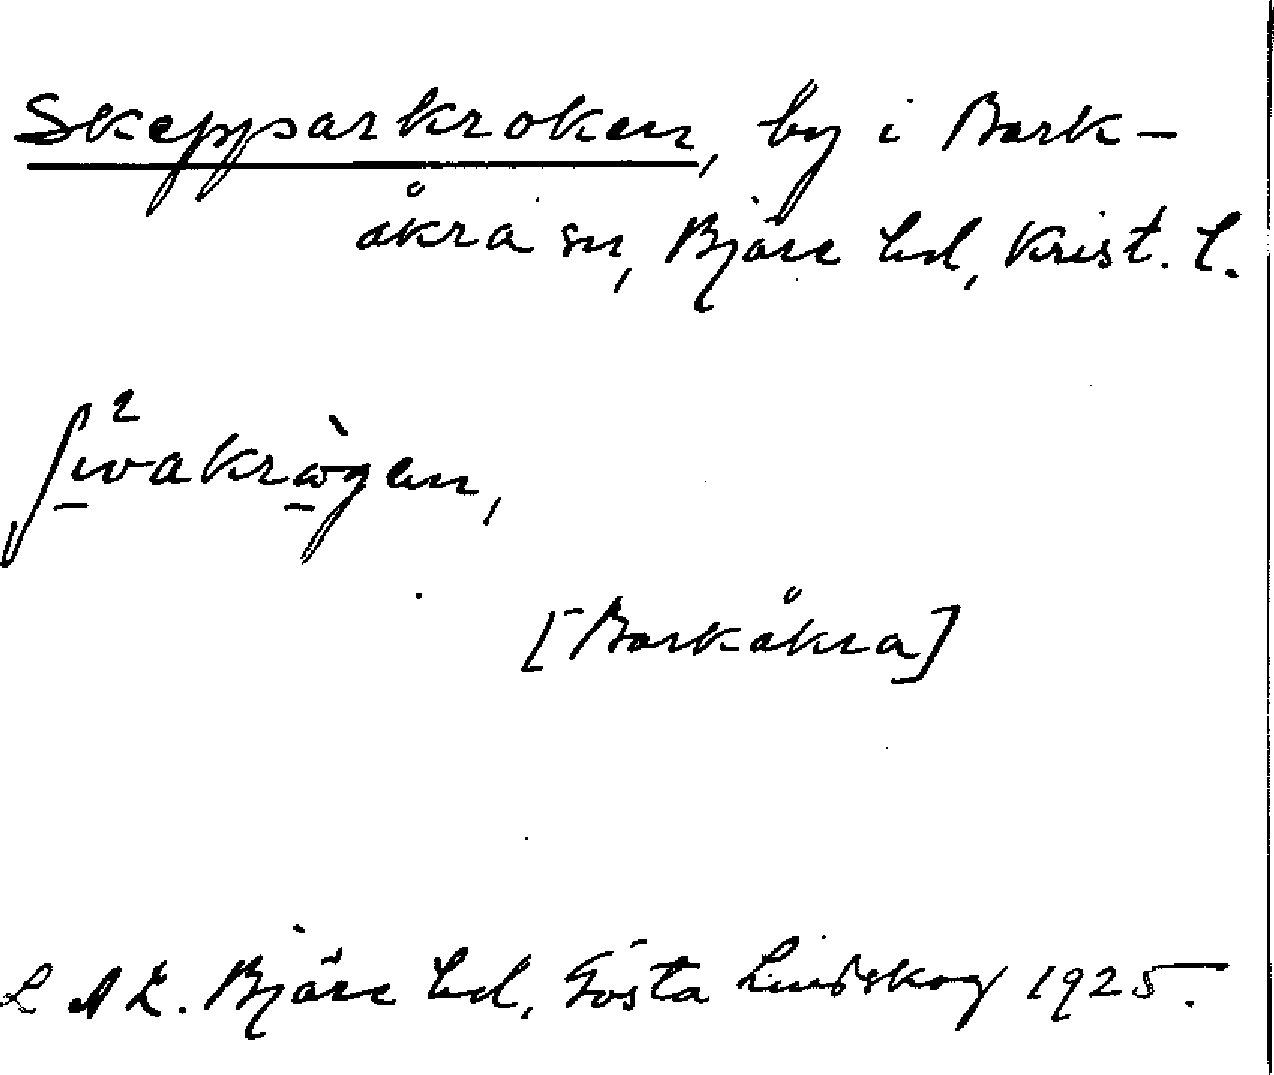 Skepparkroken, by i Bark-
åkra sn, Bjäre hd, Krist. l.
[Barkåkra]
LAL. Bjäre hd, Gösta Lindskog 1925.